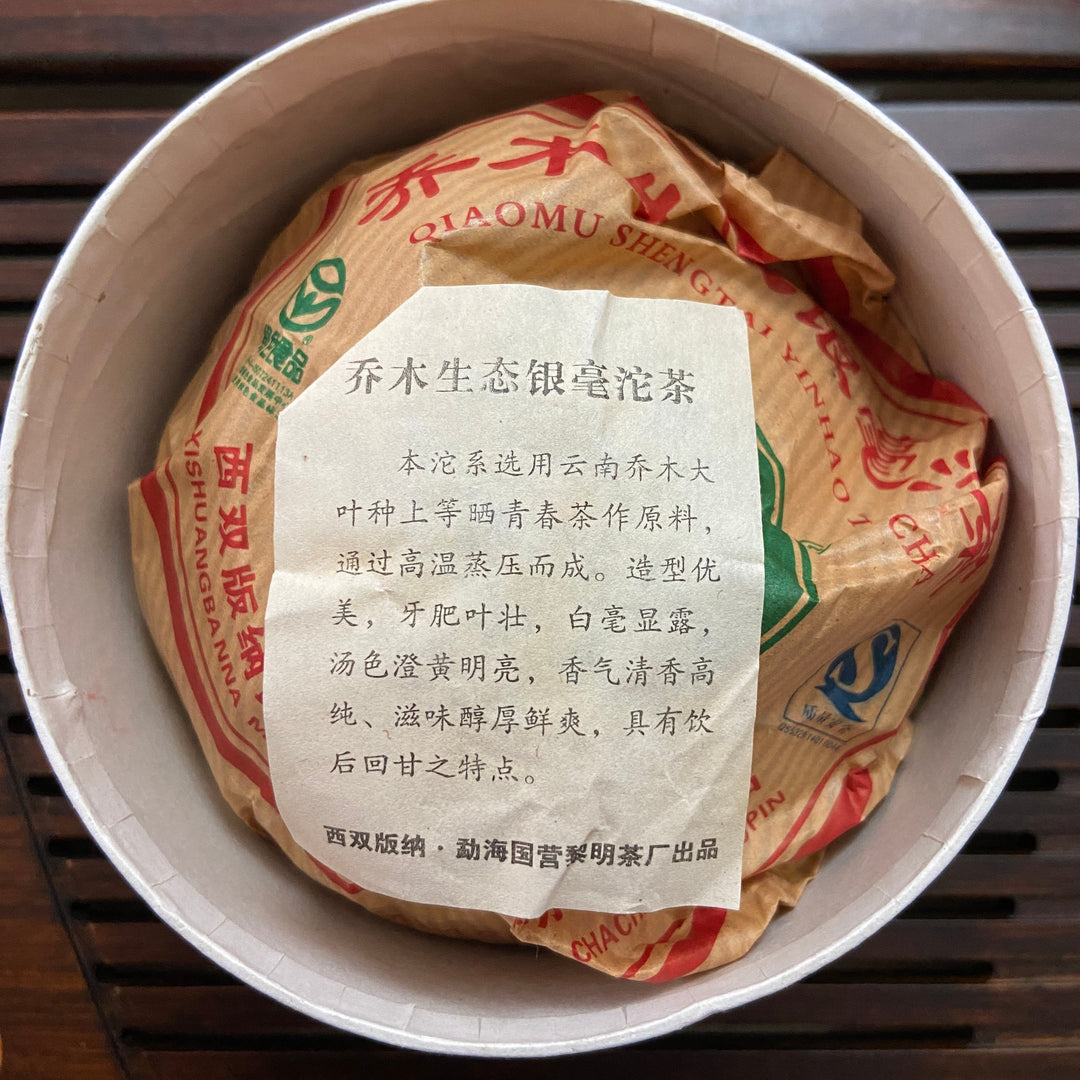 乔木生态银毫沱茶
本沱系选用云南乔木大
叶种上等晒青春茶作原料，
通过高温蒸压而成。造型优
美，牙肥叶壮，白毫显露，
汤色澄黄明亮，香气清香高
纯、滋味醇厚鲜爽，具有饮
后回甘之特点。
西双版纳·勐海国营黎明茶厂出品
乔木
QIAOMU SHENGTAI YINHAO
CHA
西双版纳
XISHUANGBANNA
食品
PIN